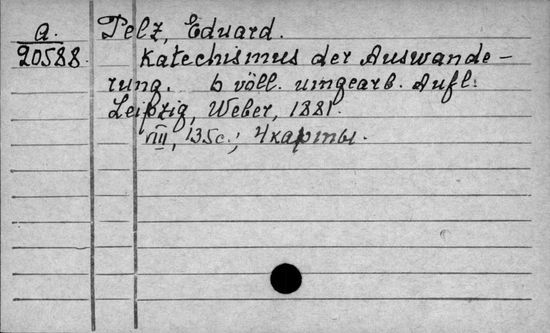 a. Pelz, Eduard.
20588. Katechismus der Auswande-
rung. 6 völl. umgearb. Aufl.
Leipzig, Weber, 1881.
VIII, 135c.; 4 карты.